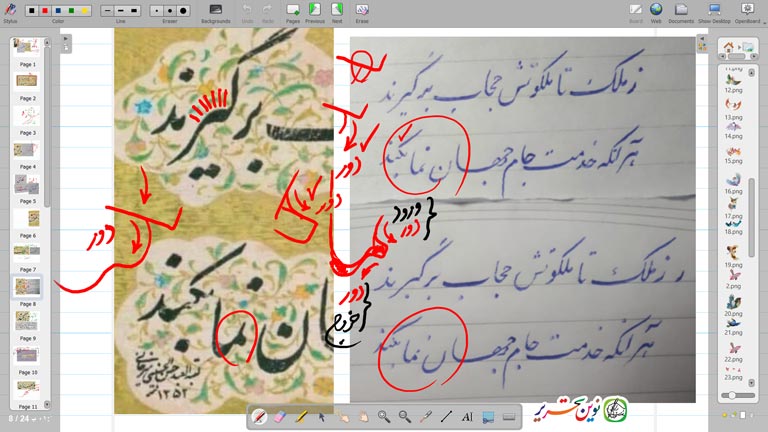 Stylus Color Line Eraser Backgrounds Undo Redo Pages Previous Next Erase Board Web Documents Show Desktop OpenBoard
Page 1
Page 2
Page 3
Page 4
Page 5
Page 6
Page 7
Page 8
Page 9
Page 10
Page 11
8 / 24
ب برگیرند
ان نما بکند
۱۳۵۲
دور
دور
دور
ورود
دور
دور
خروج
ز ملک تا ملکوتش حجاب برگیرند
هر آنکه خدمت جام جهان نما بکند
ز ملک تا ملکوتش حجاب برگیرند
هر آنکه خدمت جام جهان نما بکند
نوین تحریر
12.png
13.png
14.png
15.png
16.png
17.png
18.png
19.png
2.png
20.png
21.png
22.png
23.png